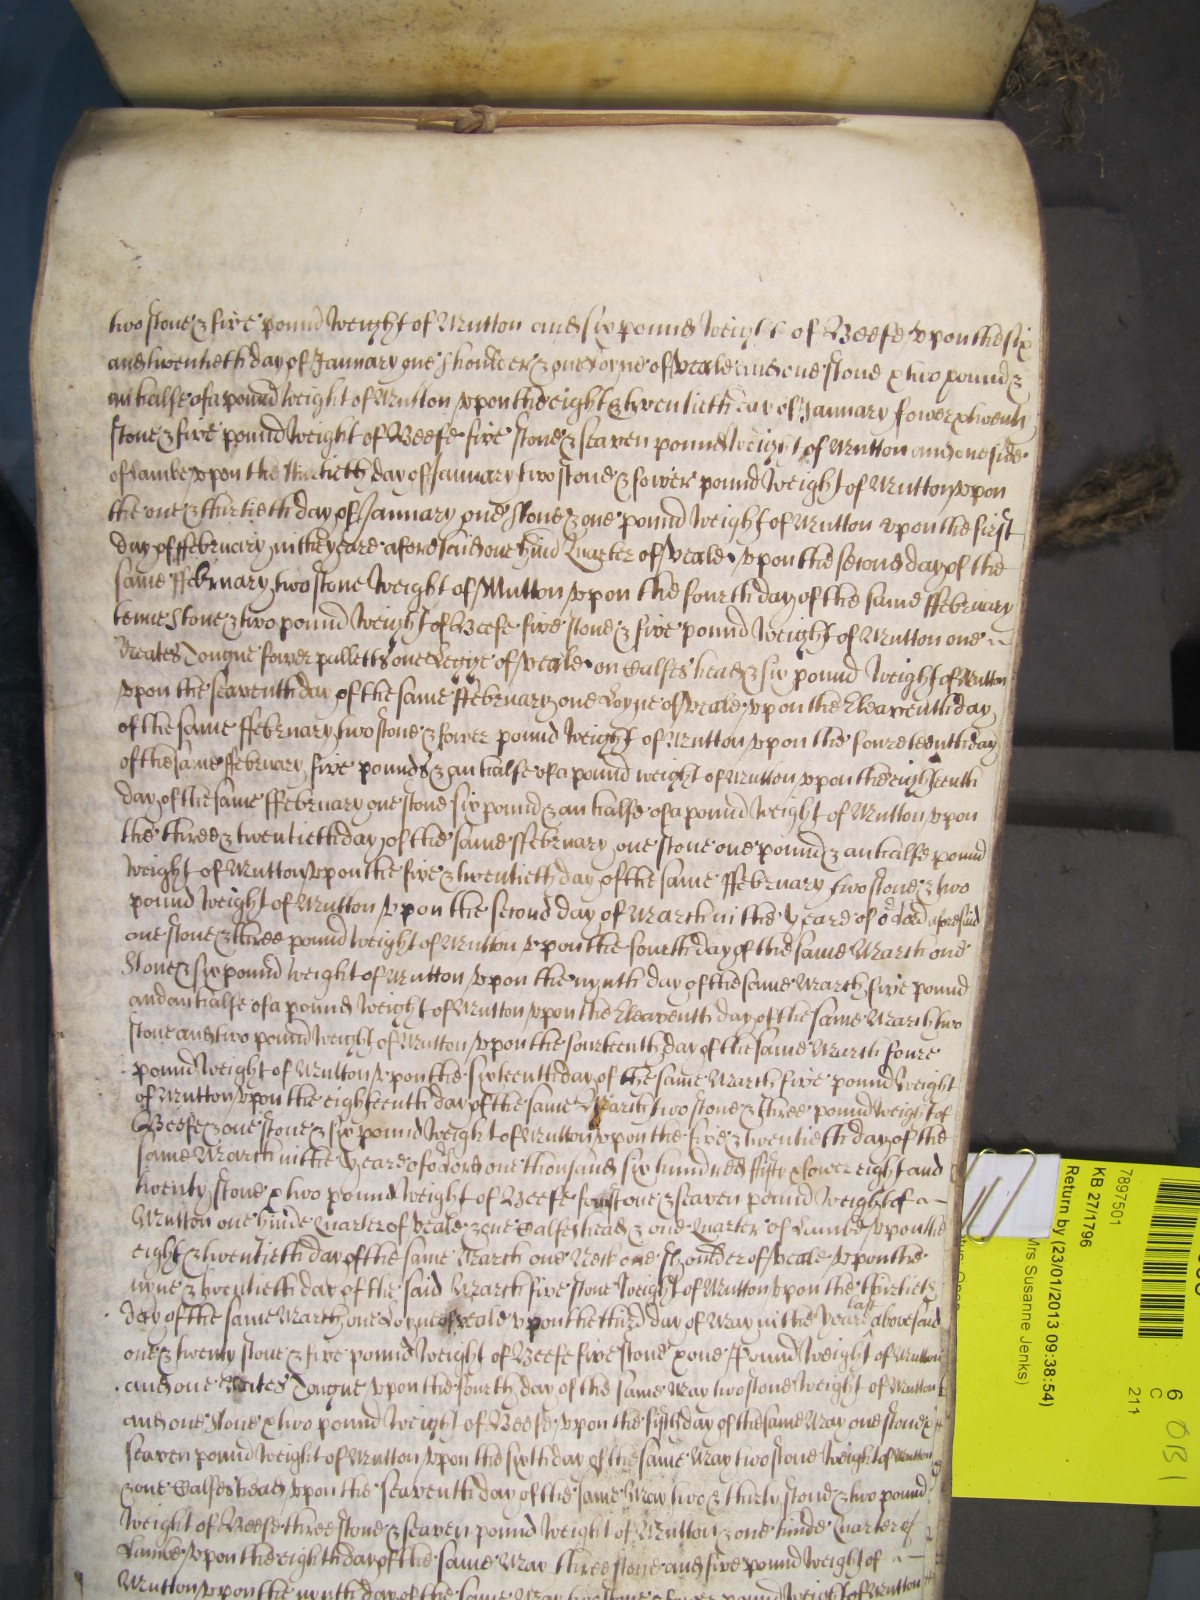 two stone & five pound weight of Mutton and six pound weight of Beefe vpon the six
and twentieth day of January one shoulder & one Loyne of Veale and one stone & two pound &
an halfe of a pound weight of Mutton vpon the eight & twentieth day of January fower & twenty
stone & five pound weight of Beefe five stone & seaven pound weight of Mutton and one side
of Lambe vpon the thirtieth day of January two stone & fower pound weight of Mutton vpon
the one & thirtieth day of January one stone & one pound weight of Mutton vpon the first
day of ffebruary in the yeare aforesaid one hind Quarter of Veale vpon the second day of the
same ffebruary two stone weight of Mutton vpon the fourth day of the same ffebruary
tenne stone & two pound weight of Beefe five stone & five pound weight of Mutton one
Neates Tongue fower palletts one Legge of Veale on Calfes head & six pound weight of Mutton
vpon the seaventh day of the same ffebruary one Loyne of Veale vpon the Eleaventh day
of the same ffebruary two stone & fower pound weight of Mutton vpon the foureteenth day
of the same ffebruary five pound & an halfe of a pound weight of Mutton vpon the eighteenth
day of the same ffebruary one stone six pound & an halfe of a pound weight of Mutton vpon
the three & twentieth day of the same ffebruary one stone one pound & an halfe pound
weight of Mutton vpon the five & twentieth day of the same ffebruary two stone & two
pound weight of Mutton vpon the second day of March in the yeare of or Lord aforesaid
one stone & three pound weight of Mutton vpon the fourth day of the same March one
stone & six pound weight of Mutton vpon the nynth day of the same March five pound
and an halfe of a pound weight of Mutton vpon the Eleaventh day of the same March two
stone and two pound weight of Mutton vpon the fourteenth day of the same March foure
pound weight of Mutton vpon the sixteenth day of the same March five pound weight
of Mutton vpon the eighteenth day of the same March two stone & three pound weight of
Beefe & one stone & six pound weight of Mutton vpon the five & twentieth day of the
same March in the yeare of or Lord one thousand six hundred fifty & fower eight and
twenty stone & two pound weight of Beefe four stone & seaven pound weight of
Mutton one hinde Quarter of Veale & one Calfes head & one Quarter of Lambe vpon the
eight & twentieth day of the same March one Neck one shoulder of Veale vpon the
nyne & twentieth day of the said March five stone weight of Mutton vpon the thirtieth
day of the same March one Loyne of Veale vpon the third day of May in the yeare last abovesaid
one & twenty stone & five pound weight of Beefe five stone & one pound weight of Mutton
and one Neates Tongue vpon the fourth day of the same May two stone weight of Mutton
and one stone & two pound weight of Beefe vpon the fifth day of the same May one stone &
seaven pound weight of Mutton vpon the sixth day of the same May two stone weight of Mutton
& one Calfes head vpon the seaventh day of the same May two & thirty stone & two pound
weight of Beefe three stone & seaven pound weight of Mutton & one hinde Quarter of
Lambe vpon the eighth day of the same May three stone and five pound weight of
Mutton vpon the nynth day of the same May two stone & fower pound weight of Mutton
7897501
KB 27/1796
Return by (23/01/2013 09:38:54)
Mrs Susanne Jenks)
6
C
211